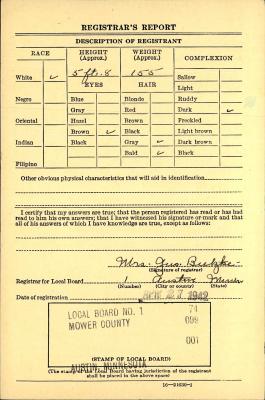 REGISTRAR'S REPORT
DESCRIPTION OF REGISTRANT
RACE HEIGHT (Approx.) WEIGHT (Approx.) COMPLEXION
White ✓ 5 ft. 8 155 Sallow
EYES HAIR Light
Negro Blue Blonde Ruddy
Gray Red Dark ✓
Oriental Hazel Brown Freckled
Brown ✓ Black Light brown
Indian Black Gray ✓ Dark brown
Bald ✓ Black
Filipino
Other obvious physical characteristics that will aid in identification
I certify that my answers are true; that the person registered has read or has had
read to him his own answers; that I have witnessed his signature or mark and that
all of his answers of which I have knowledge are true, except as follows:
Mrs. Gus. Butzke
(Signature of registrar)
Registrar for Local Board 1 Austin Minn
(Number) (City or county) (State)
Date of registration 27 1942
LOCAL BOARD NO. 1 74
MOWER COUNTY 099
001
AUSTIN, MINNESOTA
(STAMP OF LOCAL BOARD)
(The stamp of the Local Board having jurisdiction of the registrant
shall be placed in the above space)